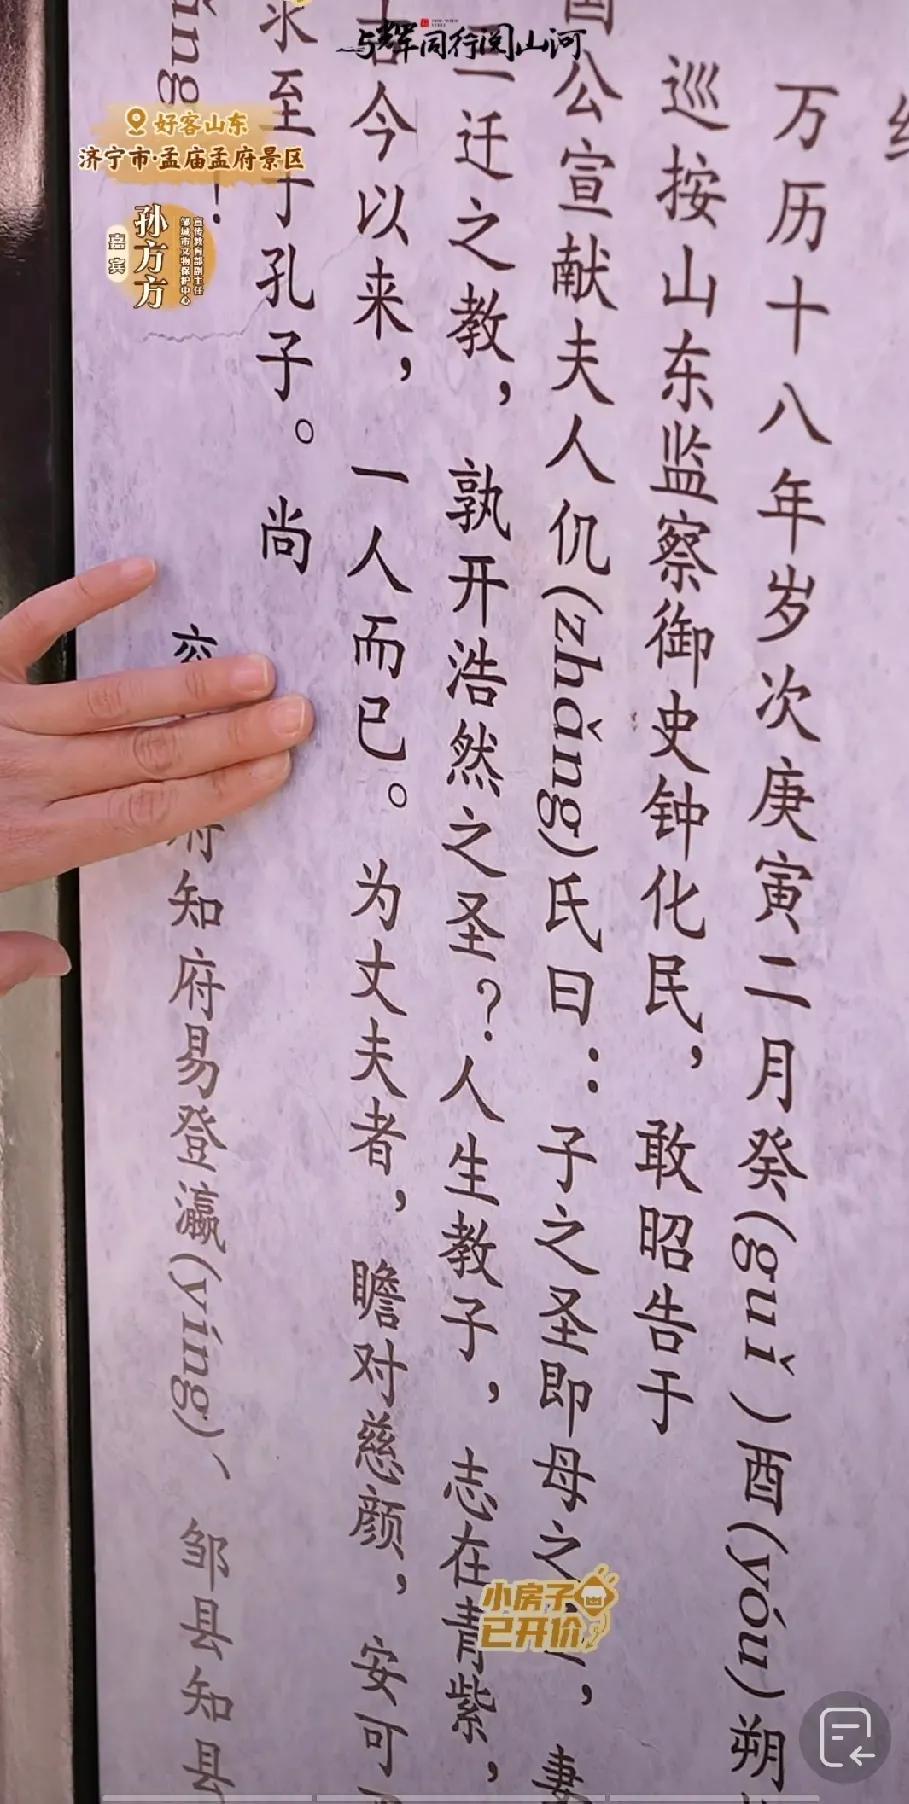 与辉同行阅山河
好客山东
济宁市·孟庙孟府景区
嘉宾
孙方方
邹城市文物保护中心
宣传教育部副主任
万历十八年岁次庚寅二月癸(guǐ)酉(yóu)朔
巡按山东监察御史钟化民，敢昭告于
公宣献夫人仉(zhǎng)氏曰：子之圣即母之，妻
迁之教，孰开浩然之圣？人生教子，志在青紫，
古今以来，一人而已。为丈夫者，瞻对慈颜，安可
求至于孔子。尚
府知府易登瀛(yíng)、邹县知县
小房子
已开价